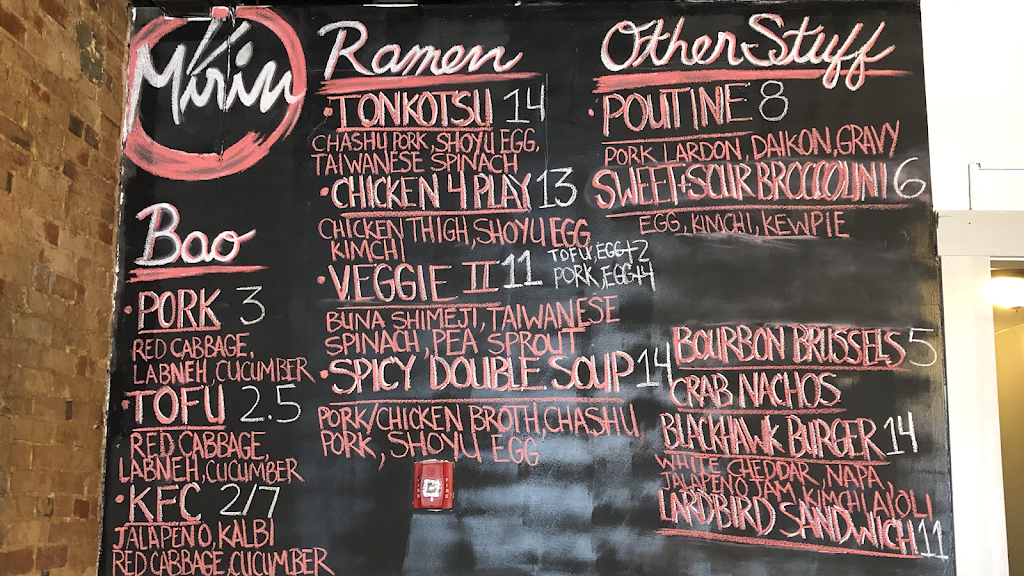 Mirin
Bao
• PORK 3
RED CABBAGE,
LABNEH, CUCUMBER
• TOFU 2.5
RED CABBAGE,
LABNEH, CUCUMBER
• KFC 2/7
JALAPENO, KALBI
RED CABBAGE, CUCUMBER
Ramen
• TONKOTSU 14
CHASHU PORK, SHOYU EGG,
TAIWANESE SPINACH
• CHICKEN 4 PLAY 13
CHICKEN THIGH, SHOYU EGG
KIMCHI
• VEGGIE II 11
TOFU, EGG+2
PORK, EGG+4
BUNA SHIMEJI, TAIWANESE
SPINACH, PEA SPROUT
• SPICY DOUBLE SOUP 14
PORK/CHICKEN BROTH, CHASHU
PORK, SHOYU EGG
Other Stuff
• POUTINE 8
PORK LARDON, DAIKON, GRAVY
SWEET+SOUR BROCCOLINI 6
EGG, KIMCHI, KEWPIE
BOURBON BRUSSELS 5
CRAB NACHOS
BLACKHAWK BURGER 14
WHITE CHEDDAR, NAPA,
JALAPENO JAM, KIMCHI AIOLI
LARDBIRD SANDWICH 11